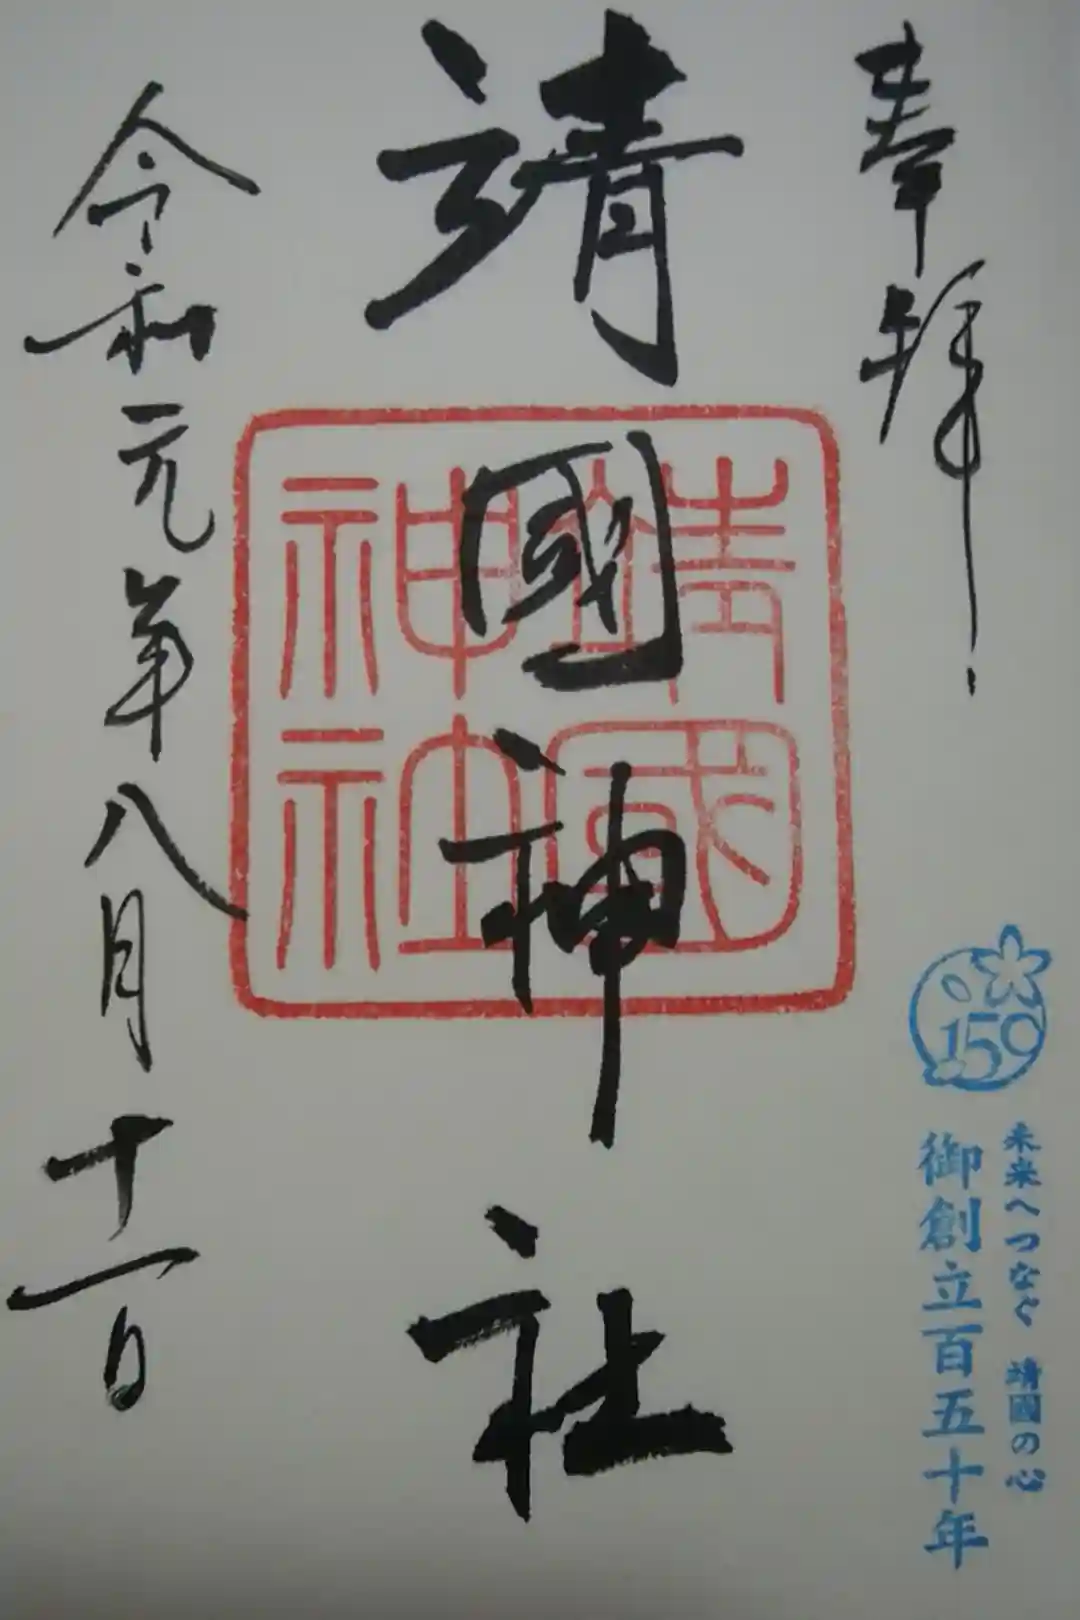 奉拝
靖國神社
靖國神社
令和元年八月十一日
150
未来へつなぐ 靖國の心
御創立百五十年